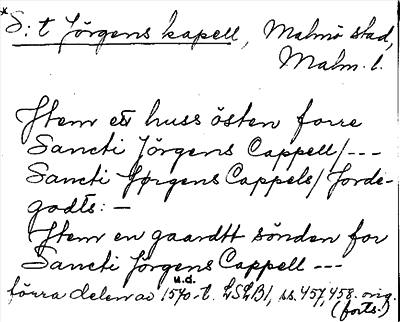 *S:t Jörgens kapell, Malmö stad,
Malm. l.
Item ett huss östen forre
Sancti Jörgens Cappell/---
Sancti Jörgens Cappels/Jorde-
godts: —
Item en gaardtt sönden for
Sancti Jörgens Cappell ---
u.d.
förra delen av 1570-t. LSLB1, ss. 457, 458. orig.
(forts.)